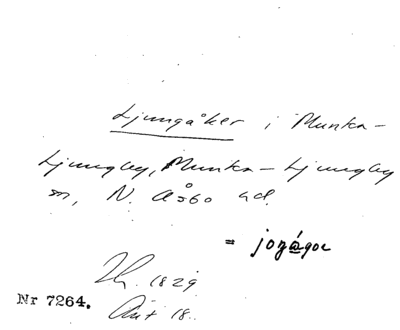 Ljungåker i Munka-
Ljungby, Munka-Ljungby
sn, N. Åsbo hd.
=
1829
Nr 7264. 18